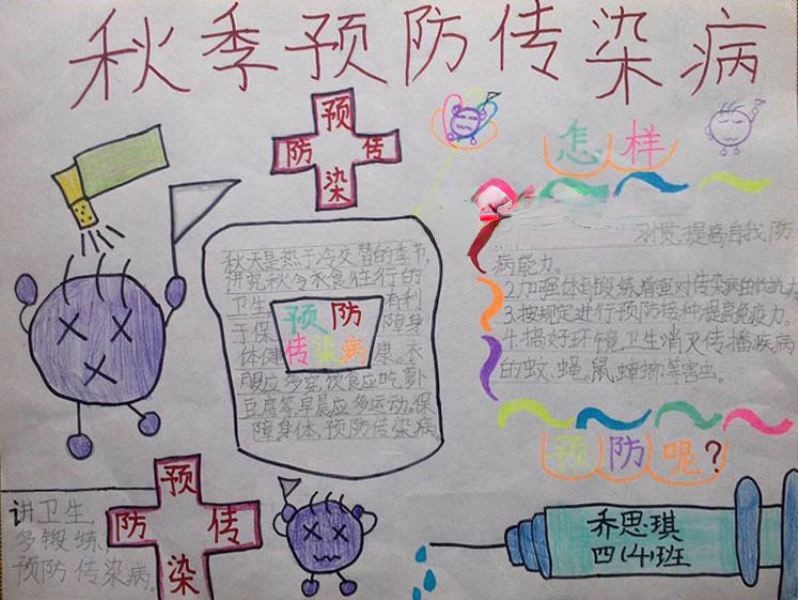 秋季预防传染病
预
防 传
染
怎样
秋天是热于冷交替的季节,
讲究秋令衣食住行的
卫生 有利
于保 障身
体健 康。衣
服应多穿,饮食应吃萝卜
豆腐等,早晨应多运动。保
障身体,预防传染病。
预防
传染病
习惯,提高自我防
病能力。
2.加强体到锻练,增强对传染病的抵抗力
3.按规定进行预防接种,提高免疫力。
4.搞好环境卫生消灭传播疾病
的蚊、蝇。鼠、蟑螂等害虫。
预防呢?
讲卫生,
多锻炼,
预防传染病。
预
防 传
染
乔思琪
四(4)班